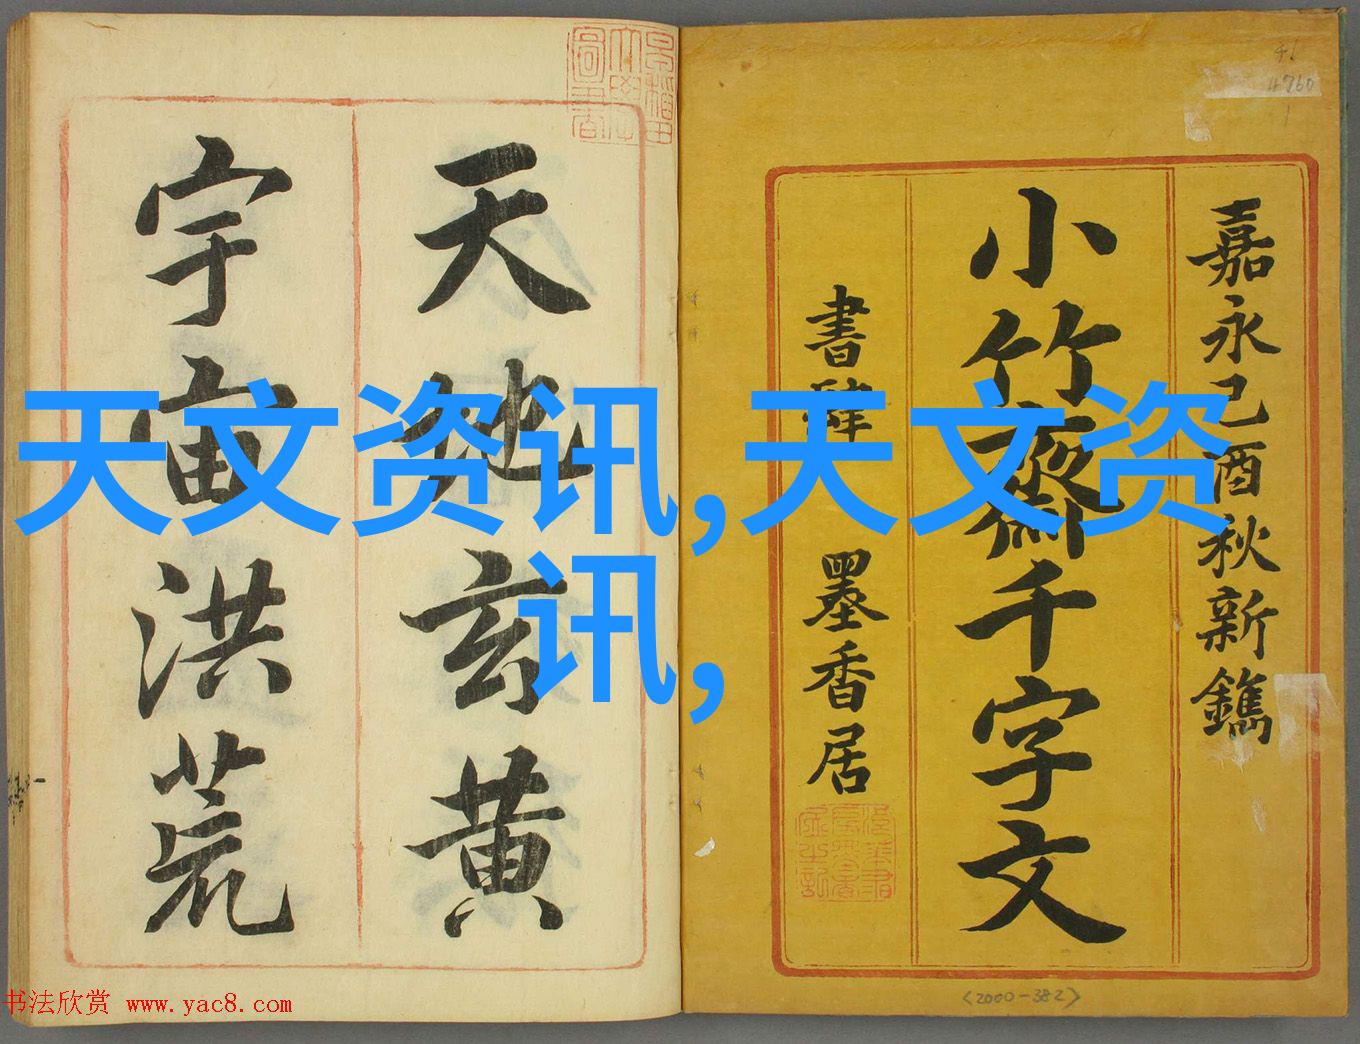 嘉永己酉秋新鐫
小竹齋千字文
書肆 墨香居
天地玄黄
宇宙洪荒
天文资讯,天文资
讯,
46
4760
<2000-382>
书法欣赏 www.yac8.com